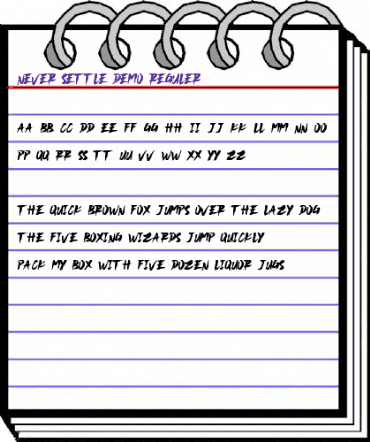 NEVER SETTLE DEMO REGULER
AA BB CC DD EE FF GG HH II JJ KK LL MM NN OO
PP QQ RR SS TT UU VV WW XX YY ZZ
THE QUICK BROWN FOX JUMPS OVER THE LAZY DOG
THE FIVE BOXING WIZARDS JUMP QUICKLY
PACK MY BOX WITH FIVE DOZEN LIQUOR JUGS